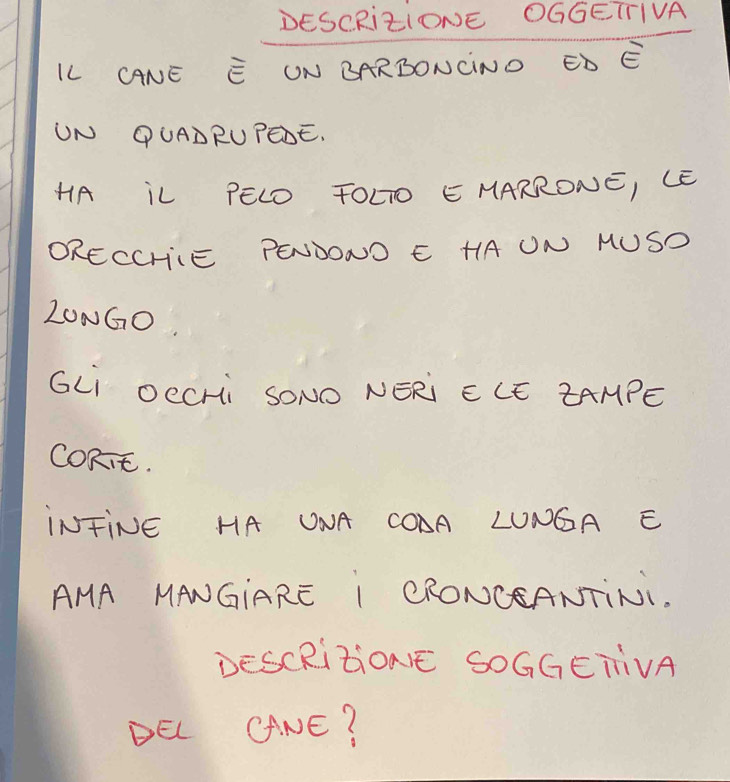 DESCRIZIONE OGGETTIVA
IL CANE È UN BARBONCINO ED È
UN QUADRUPEDE.
HA IL PELO FOLTO E MARRONE, LE
ORECCHIE PENDONO E HA UN MUSO
LUNGO.
GLI OCCHI SONO NERI E LE ZAMPE
CORTE.
INFINE HA UNA CODA LUNGA E
AMA MANGIARE I CRONCCANTINI.
DESCRIZIONE SOGGETTIVA
DEL CANE?